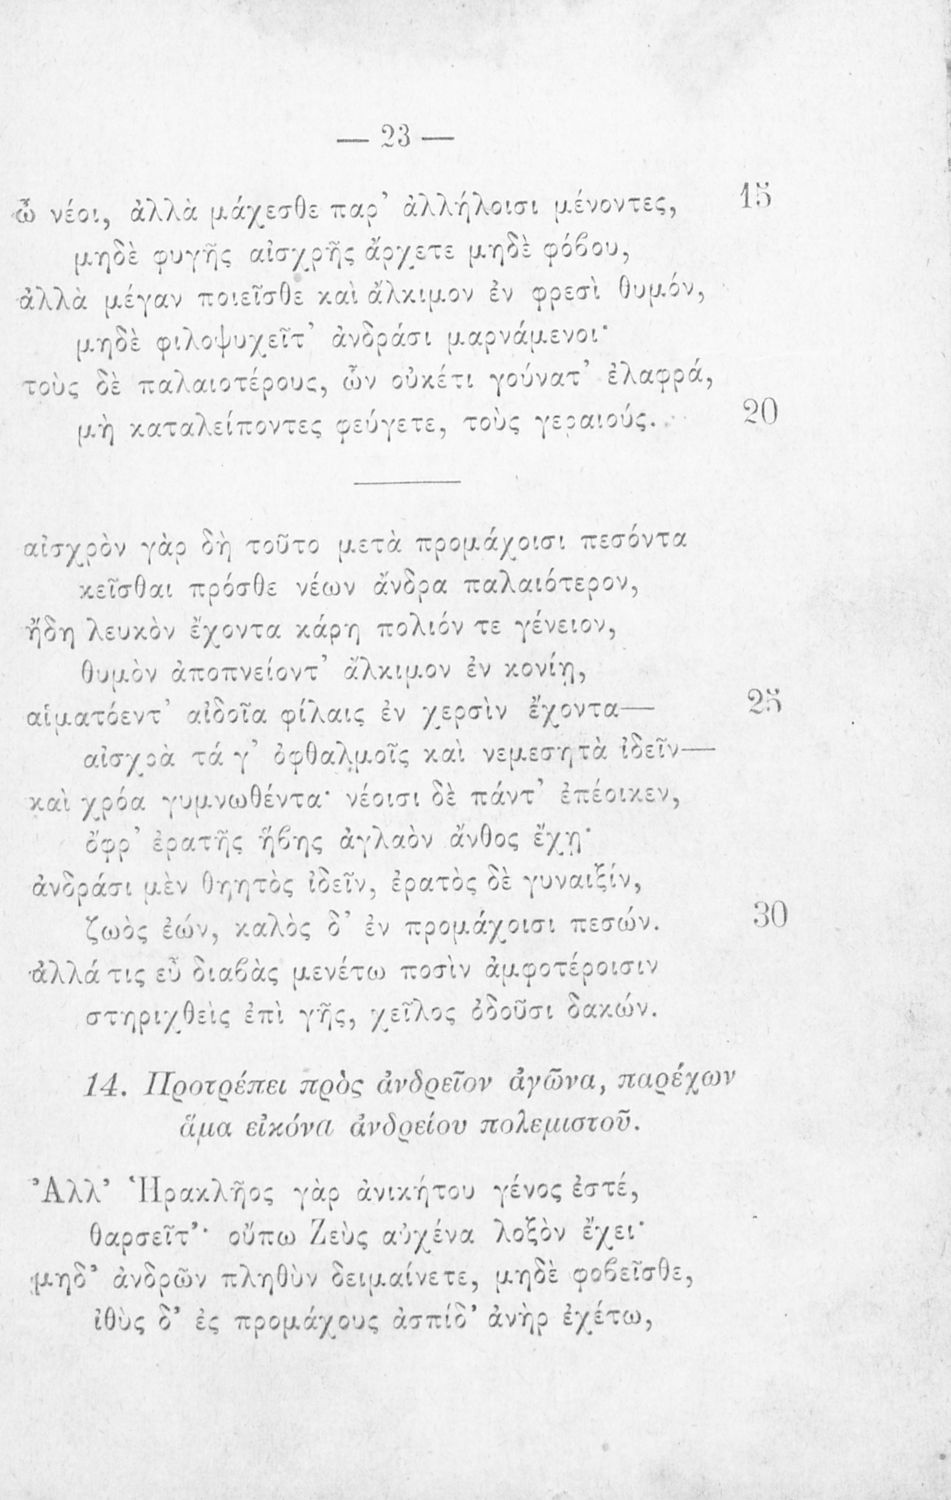 — 23 —
ὦ νέοι, ἀλλὰ μάχεσθε παρ’ ἀλλήλοισι μένοντες, 15
μηδὲ φυγῆς αἰσχρῆς ἄρχετε μηδὲ φόβου,
ἀλλὰ μέγαν ποιεῖσθε καὶ ἄλκιμον ἐν φρεσὶ θυμόν,
μηδὲ φιλοψυχεῖτ’ ἀνδράσι μαρνάμενοι·
τοὺς δὲ παλαιοτέρους, ὧν οὐκέτι γούνατ’ ἐλαφρά,
μὴ καταλείποντες φεύγετε, τοὺς γεραιούς. 20
αἰσχρὸν γὰρ δὴ τοῦτο μετὰ προμάχοισι πεσόντα
κεῖσθαι πρόσθε νέων ἄνδρα παλαιότερον,
ἤδη λευκὸν ἔχοντα κάρη πολιόν τε γένειον,
θυμὸν ἀποπνείοντ’ ἄλκιμον ἐν κονίῃ,
αἱματόεντ’ αἰδοῖα φίλαις ἐν χερσὶν ἔχοντα— 25
αἰσχρὰ τά γ’ ὀφθαλμοῖς καὶ νεμεσητὰ ἰδεῖν—
καὶ χρόα γυμνωθέντα· νέοισι δὲ πάντ’ ἐπέοικεν,
ὄφρ’ ἐρατῆς ἥβης ἀγλαὸν ἄνθος ἔχῃ·
ἀνδράσι μὲν θηητὸς ἰδεῖν, ἐρατὸς δὲ γυναιξίν,
ζωὸς ἐών, καλὸς δ’ ἐν προμάχοισι πεσών. 30
ἀλλά τις εὖ διαβὰς μενέτω ποσὶν ἀμφοτέροισιν
στηριχθεὶς ἐπὶ γῆς, χεῖλος ὀδοῦσι δακών.
14. Προτρέπει πρὸς ἀνδρεῖον ἀγῶνα, παρέχων
ἅμα εἰκόνα ἀνδρείου πολεμιστοῦ.
Ἀλλ’ Ἡρακλῆος γὰρ ἀνικήτου γένος ἐστέ,
θαρσεῖτ’· οὔπω Ζεὺς αὐχένα λοξὸν ἔχει·
μηδ’ ἀνδρῶν πληθὺν δειμαίνετε, μηδὲ φοβεῖσθε,
ἰθὺς δ’ ἐς προμάχους ἀσπίδ’ ἀνὴρ ἐχέτω,